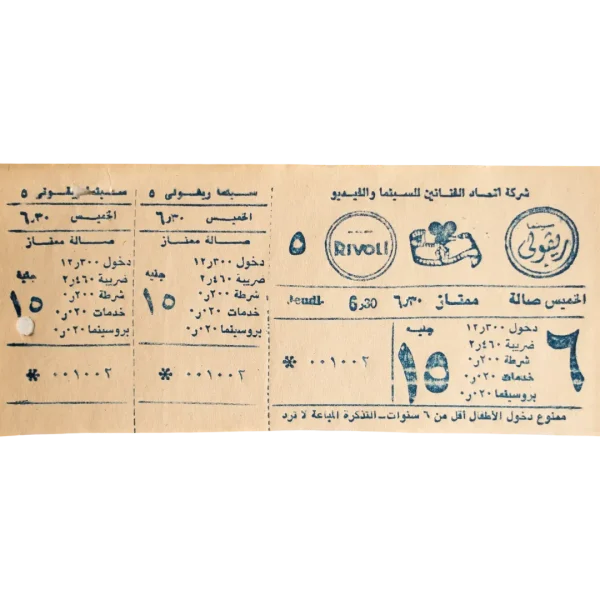 شركة اتحاد الفنانين للسينما والفيديو
سينما
ريڤولى
RIVOLI
٥
الخميس صالة ممتاز ٦٫٣٠ 6,30 Jeudi
٦
دخول ١٢٫٣٠٠
ضريبة ٢٫٤٦٠
شرطة ٠٫٢٠٠
خدمات ٠٫٠٢٠
بروسينما ٠٫٠٢٠
جنيه
١٥
* ٠٠١٠٠٢
ممنوع دخول الأطفال أقل من ٦ سنوات ــ التذكرة المباعة لا ترد
سينما ريفولى ٥
الخميس ٦٫٣٠
صالة ممتاز
دخول ١٢٫٣٠٠
ضريبة ٢٫٤٦٠
شرطة ٠٫٢٠٠
خدمات ٠٫٠٢٠
بروسينما ٠٫٠٢٠
جنيه
١٥
* ٠٠١٠٠٢
سينما ريفولى ٥
الخميس ٦٫٣٠
صالة ممتاز
دخول ١٢٫٣٠٠
ضريبة ٢٫٤٦٠
شرطة ٠٫٢٠٠
خدمات ٠٫٠٢٠
بروسينما ٠٫٠٢٠
جنيه
١٥
* ٠٠١٠٠٢